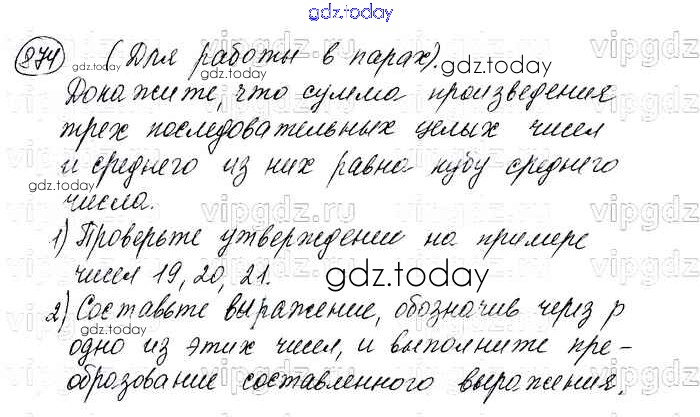 gdz.today
874 (Для работы в парах).
Докажите, что сумма произведения
трех последовательных целых чисел
и среднего из них равна кубу среднего
числа.
1) Проверьте утверждение на примере
чисел 19, 20, 21.
2) Составьте выражение, обозначив через p
одно из этих чисел, и выполните пре-
образование составленного выражения.
gdz.today
gdz.today
gdz.today
gdz.today
gdz.today
vipgdz.ru
vipgdz.ru